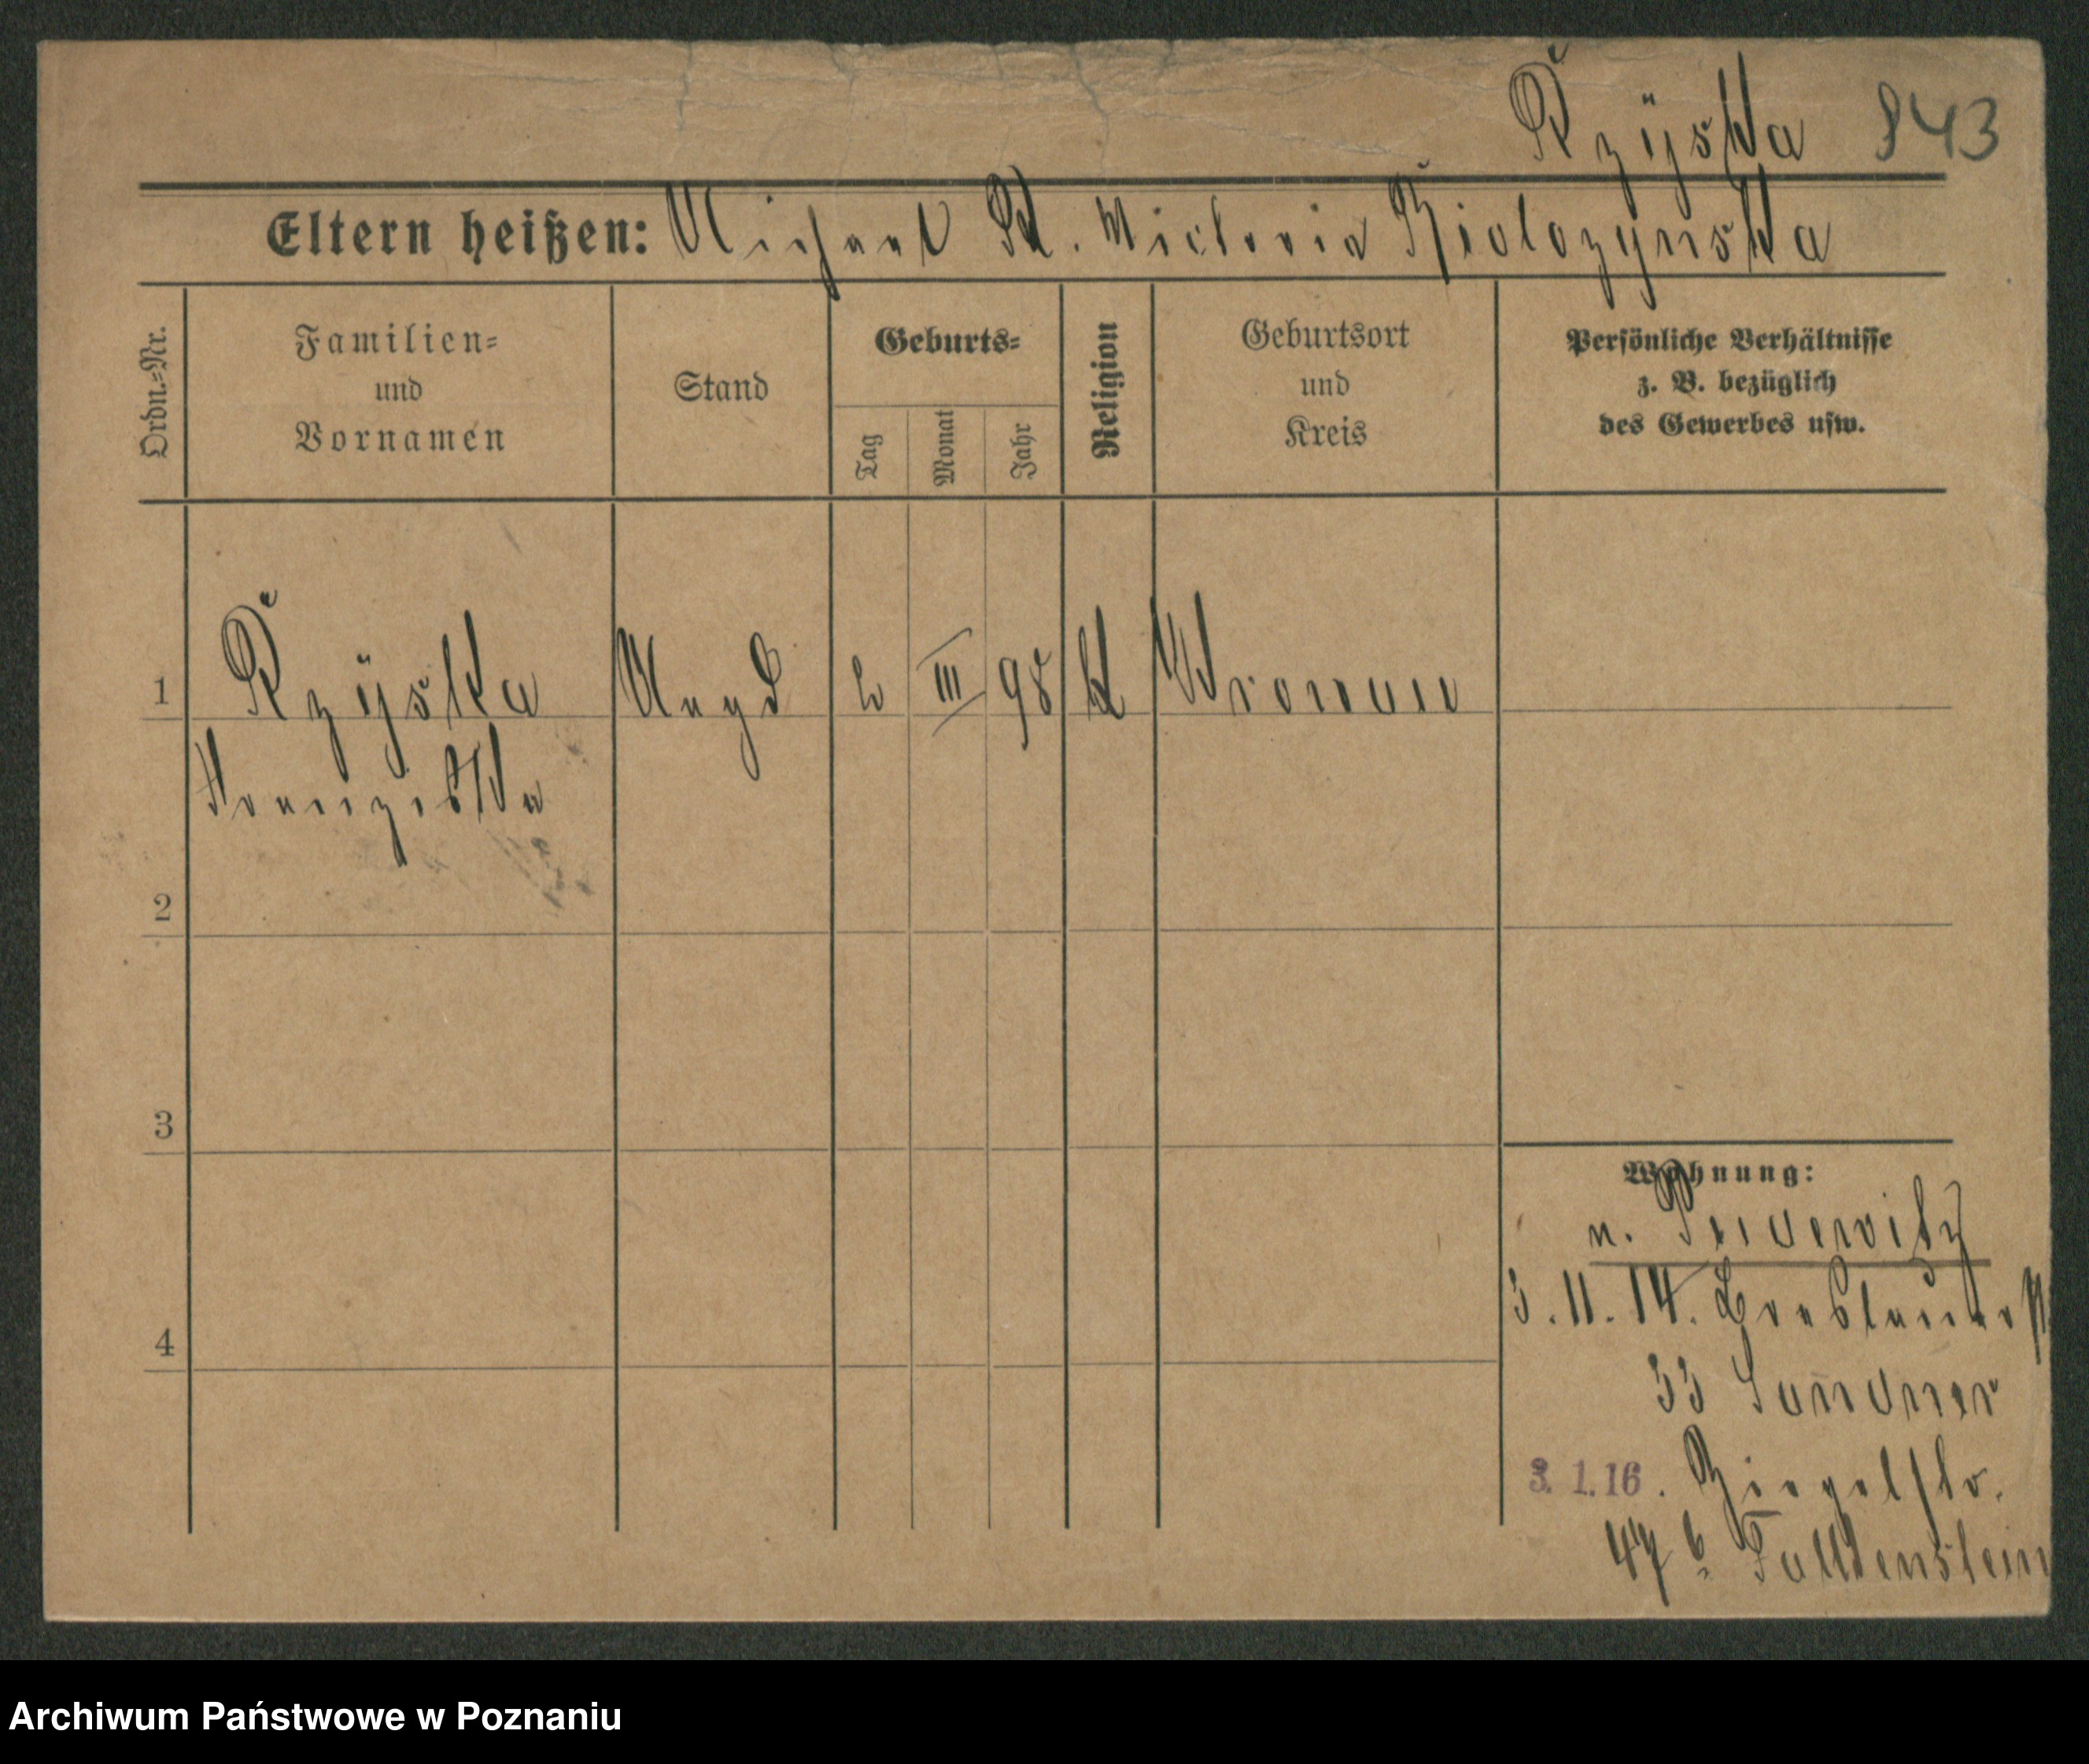 Rzÿska 843
Eltern heißen: Michael R. Victoria Bialozynska
Ordn.=Nr.
Familien=
und
Vornamen
Stand
Geburts=
Tag
Monat
Jahr
Religion
Geburtsort
und
Kreis
Persönliche Verhältnisse
z. B. bezüglich
des Gewerbes usw.
1 Rzÿska Magd III 98 k Wronau
Franziska
2
3
4
Wohnung:
n. Pudewitz
3.11.14. Breslauerst
33 Sandner
3. 1. 16. Ziegelstr.
47b Falkenstein
Archiwum Państwowe w Poznaniu